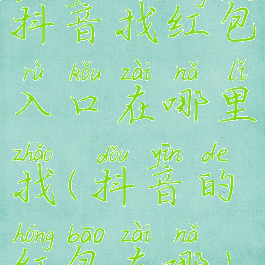 抖音找红包
rù kǒu zài nǎ lǐ
入口在哪里
zhǎo dǒu yīn de
找(抖音的
hóng bāo zài nǎ
红包在哪)